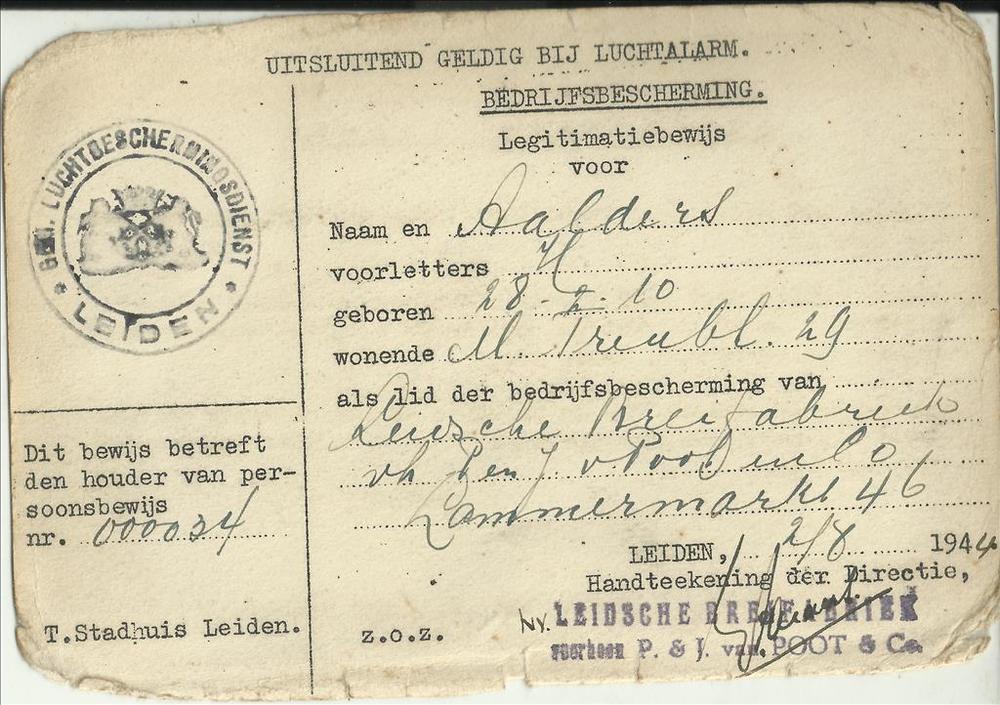 UITSLUITEND GELDIG BIJ LUCHTALARM.
BEDRIJFSBESCHERMING.
Legitimatiebewijs
voor
GEM. LUCHTBESCHERMINGSDIENST
* LEIDEN *
Naam en Aalders
voorletters H
geboren 28-X-10
wonende M. Treubl. 29
als lid der bedrijfsbescherming van
Leidsche Breifabriek
vh P en J v Poot en Co
Lammermarkt 46
Dit bewijs betreft
den houder van per-
soonsbewijs
nr. 000034
LEIDEN, 2/8 1944
Handteekening der Directie,
NV. LEIDSCHE BREIFABRIEK
voorheen P. & J. van POOT & Co.
T.Stadhuis Leiden.
z.o.z.